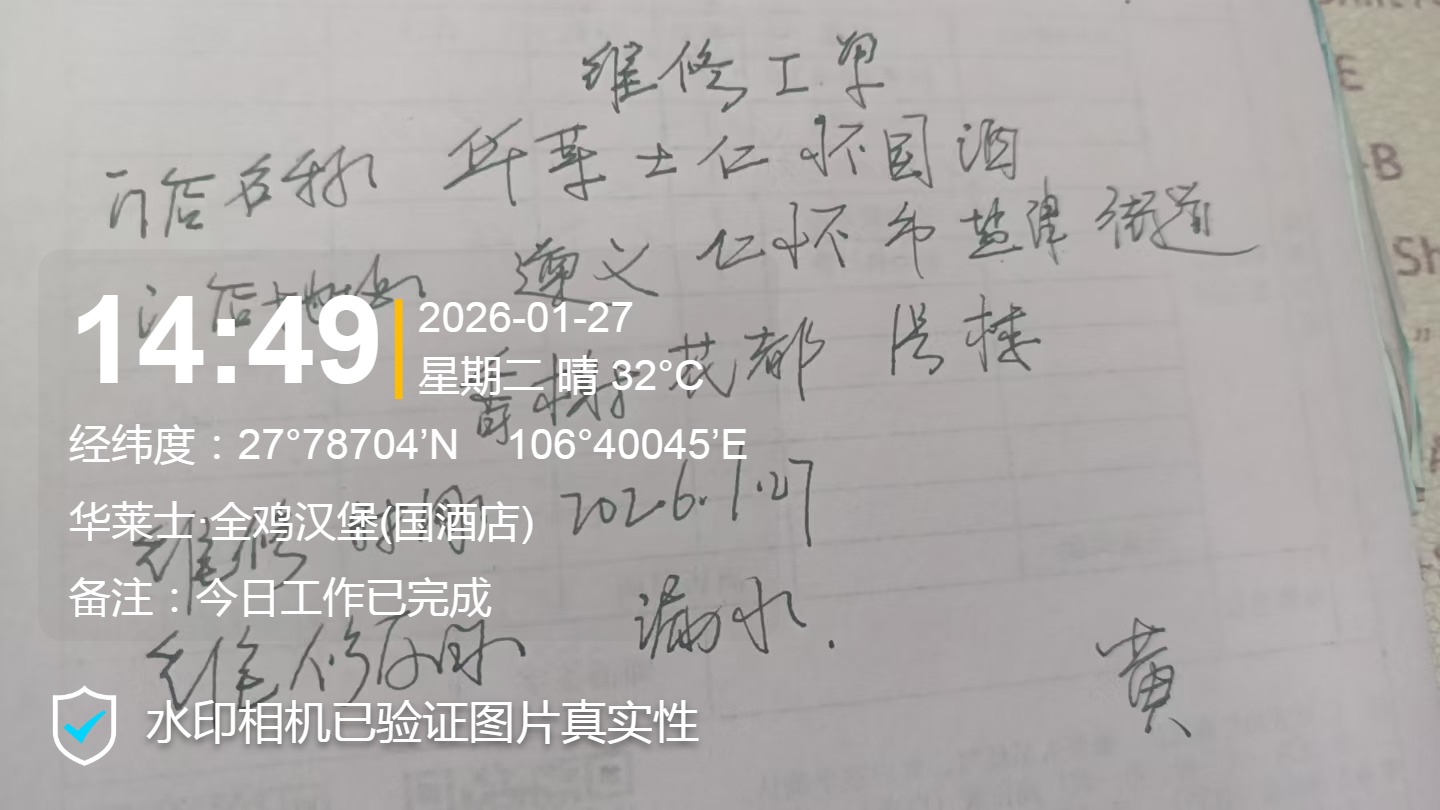 维修工单
门店名称 华莱士仁怀国酒
门店地址 遵义仁怀市盐津街道
酱香 花都 楼
维修时间 2026.1.27
维修原因 漏水.
黄
14:49
2026-01-27
星期二 晴 32°C
经纬度：27°78704’N 106°40045’E
华莱士·全鸡汉堡(国酒店)
备注：今日工作已完成
水印相机已验证图片真实性
E
-B
Sh